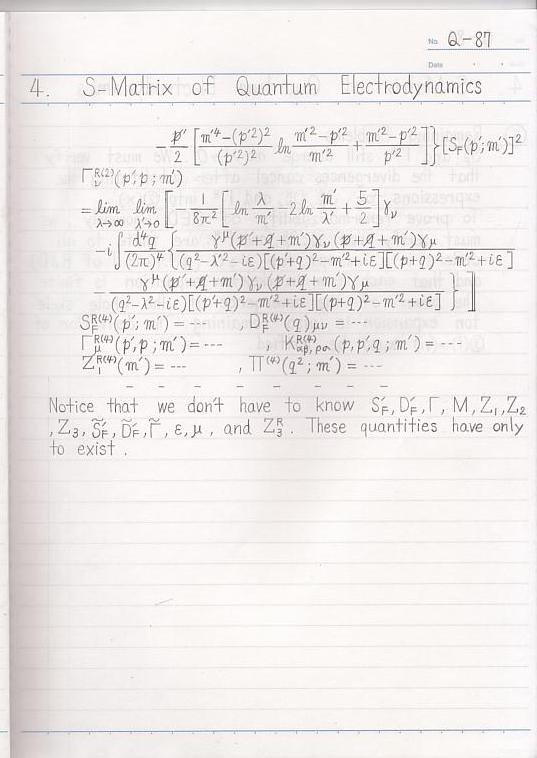 No. Q-87
Date
4. S-Matrix of Quantum Electrodynamics
-p̸'/2 [m'⁴-(p'²)²/(p'²)² ln m'²-p'²/m'² + m'²-p'²/p'²]}[S_F(p';m')]²
Γ_ν^R(2)(p',p;m')
= lim_λ→∞ lim_λ'→0 [1/8π² [ln λ/m' - 2 ln m'/λ' + 5/2] γ_ν
-i∫ d⁴q/(2π)⁴ {γ^μ(p̸'+q̸+m')γ_ν(p̸+q̸+m')γ_μ/(q²-λ'²-iε)[(p'+q)²-m'²+iε][(p+q)²-m'²+iε]
- γ^μ(p̸'+q̸+m')γ_ν(p̸+q̸+m')γ_μ/(q²-λ²-iε)[(p'+q)²-m'²+iε][(p+q)²-m'²+iε]}]
S_F^R(4)(p';m') = --- D_F^R(4)(q)_μν = ---
Γ_μ^R(4)(p',p;m') = --- , K_αβ,ρσ^R(4)(p,p',q;m') = ---
Z_1^R(4)(m') = --- , Π^(4)(q²;m') = ---
– – – – – – – – – –
Notice that we don't have to know S_F', D_F', Γ, M, Z₁, Z₂
, Z₃, S̃_F', D̃_F', Γ̃, ε, μ, and Z_3^R. These quantities have only
to exist.